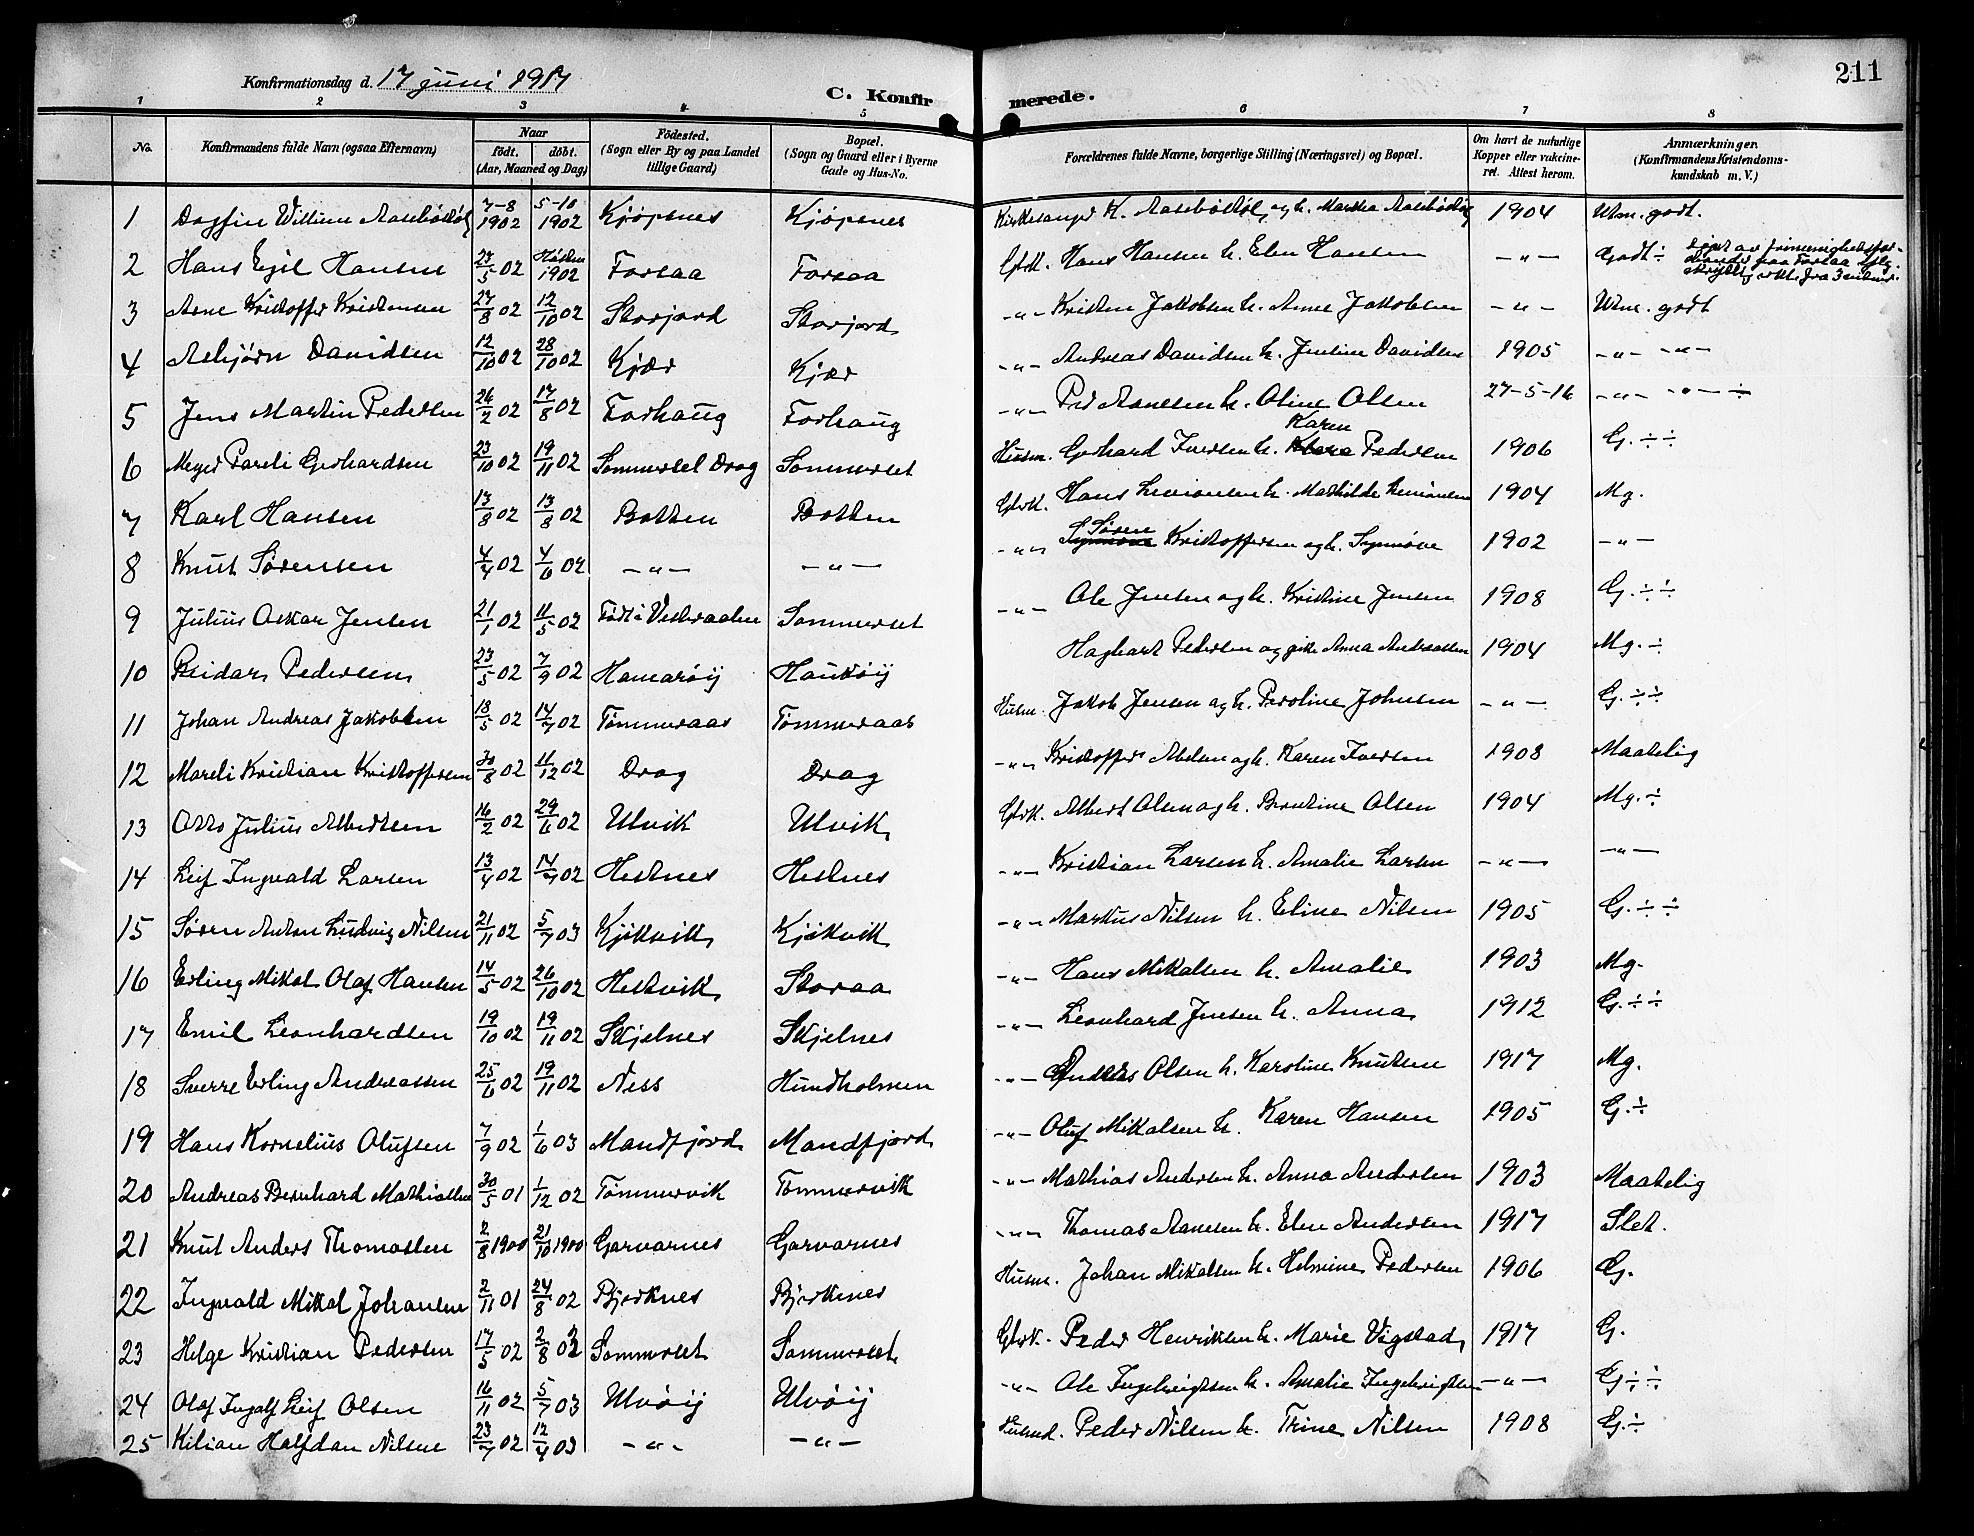 211
Konfirmationsdag d. 17 juni 1917
C. Konfirmerede.
1 2 3 4 5 6 7 8
No. Konfirmandens fulde Navn (ogsaa Efternavn) Naar født. døbt. (Aar, Maaned og Dag) Fødested. (Sogn eller By og paa Landet tillige Gaard) Bopæl. (Sogn og Gaard eller i Byerne Gade og Hus-No. Forældrenes fulde Navne, borgerlige Stilling (Næringsvei) og Bopæl. Om havt de naturlige Kopper eller vakcineret. Attest herom. Anmærkninger. (Konfirmandens Kristendomskundskab m. V.)
1 Dagfin 7-8 1902 5-10 1902 Kjøpsnes Kjøpsnes Kirkesanger K. og h. 1904 Utm. godt.
2 Hans Egil Hansen 27/5 02 Høsten 1902 Forsaa Forsaa Gbrk. Hans Hansen h. Elen Hansen -"- Godt ÷
3 Arne Kristoffer Kristensen 27/8 02 12/10 02 Storjord Storjord -"- Kristen Jakobsen h. Anne Jakobsen -"- Utm. godt
4 Asbjørn Davidsen 12/10 02 28/10 02 Kjær Kjær -"- Andreas Davidsen h. Justine Davidsen 1905 -"- -"-
5 Jens Martin Pedersen 26/2 02 17/8 02 Forhaug Forhaug -"- Ped Aanesen h. Oline Olsen 27-5-16 -"- -"- ÷
6 Meyer Pareli Gerhardsen 23/10 02 19/11 02 Sommerset Drag Sommerset Husm. Gerhard Iversen h. Karen Pedersen 1906 G. ÷ ÷
7 Karl Hansen 13/8 02 13/8 02 Botten Botten Gbrk. Hans Simonsen h. Mathilde Simonsen 1904 Mg.
8 Knut Sørensen 4/4 02 4/6 02 -"- -"- -"- Søren Kristoffersen og h. Synnøve 1902 -"-
9 Julius Oskar Jensen 21/1 02 11/5 02 Født i Vesteraalen Sommerset -"- Ole Jensen og h. Kristine Jensen 1908 G. ÷ ÷
10 Reidar Pedersen 23/5 02 7/9 02 Hamarøy Haukøy Haghart Pedersen og pike Anna Andreassen 1904 Mg. ÷
11 Johan Andreas Jakobsen 18/5 02 14/7 02 Tømmeraas Tømmeraas Husm. Jakob Jensen og h. Peroline Johnsen -"- G. ÷ ÷
12 Mareli Kristian Kristoffersen 30/8 02 11/12 02 Drag Drag -"- Kristoffer Abelsen og h. Karen Iversen 1908 Maatelig
13 Otto Julius Albertsen 16/2 02 29/6 02 Ulvik Ulvik Gbrk. Albert Olsen og h. Berntine Olsen 1904 Mg. ÷
14 Leif Ingvald Larsen 13/4 02 14/7 02 Hestnes Hestnes -"- Kristian Larsen h. Amalie Larsen -"- -"-
15 Søren Anton Ludvig Nilsen 21/11 02 5/7 03 Kjøkvik Kjøkvik -"- Markus Nilsen h. Eline Nilsen 1905 G. ÷ ÷
16 Erling Mikal Olaf Hansen 14/5 02 26/10 02 Hestvik Storaa -"- Hans Mikalsen h. Amalie 1903 Mg.
17 Emil Leonhardsen 19/10 02 19/11 02 Skjelnes Skjelnes -"- Leonhard Jensen h. Anna 1912 G. ÷ ÷
18 Sverre Erling Andreassen 25/6 02 19/11 02 Ness Hundholmen -"- Andreas Olsen h. Karoline Knutsen 1917 Mg.
19 Hans Kornelius Olufsen 7/9 02 1/6 03 Mandfjord Mandfjord -"- Oluf Mikalsen h. Karen Hansen 1905 G. ÷
20 Andreas Bernhard Mathiassen 30/5 01 1/12 02 Tømmervik Tømmervik -"- Mathias Andersen h. Anna Andersen 1903 Maatelig
21 Knut Anders Thomassen 2/8 1900 21/10 1900 Garvarnes Garvarnes -"- Thomas Aanesen h. Elen Andersen 1917 Slet.
22 Ingvald Mikal Johansen 2/11 01 24/8 02 Bjerknes Bjerknes Husm. Johan Mikalsen h. Helmine Pedersen 1906 G.
23 Helge Kristian Pedersen 17/5 02 2/8 02 Sommerset Sommerset Gbrk. Peder Henriksen h. Marie Vigstad 1917 G.
24 Olaf Ingolf Leif Olsen 16/11 02 5/7 03 Ulvøy Ulvøy -"- Ole Ingebrigtsen h. Amalie Ingebrigtsen -"- G. ÷ ÷
25 Kilian Halfdan Nilsen 23/7 02 12/4 03 -"- -"- Husmd. Peder Nilsen h. Trine Nilsen 1908 G. ÷